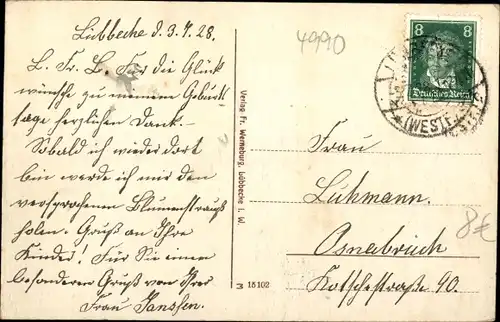 Lübbecke d. 3.7.28.
L. Fr. L. Für die Glück
wünsche zu meinem Geburts
tage herzlichen Dank.
Sobald ich wieder dort
bin werde ich mir den
versprochenen Blumenstrauß
holen. Gruß an Ihre
Kinder! Für Sie einen
besonderen Gruß von Ihrer
Frau Janssen.
4990
8 8
Deutsches Reich
(WESTF.)
Verlag Fr. Werneburg, Lübbecke i. W.
M 15102
Frau
Lühmann.
Osnabrück
Kotschestraße 90.
8€